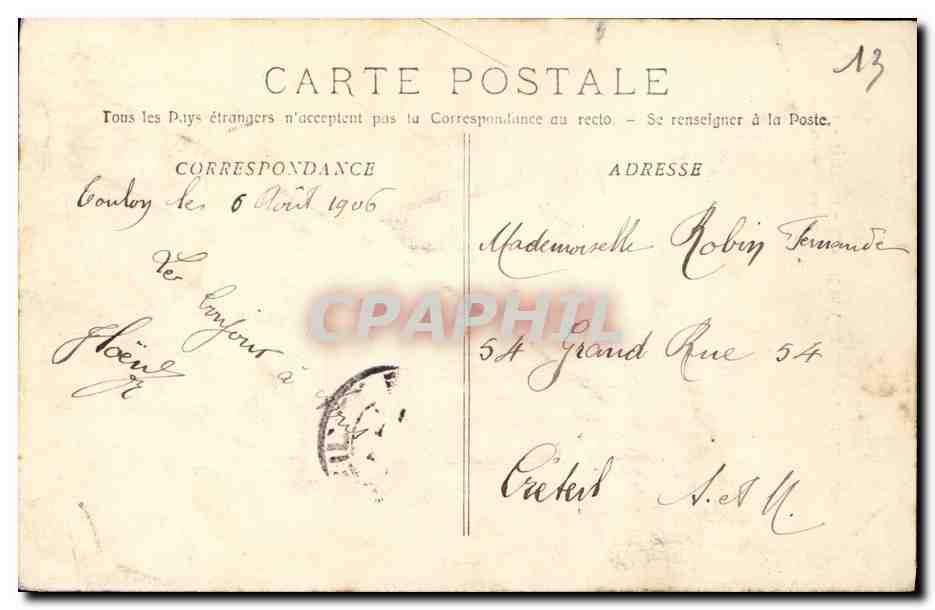 13
CARTE POSTALE
Tous les Pays étrangers n'acceptent pas la Correspondance au recto. - Se renseigner à la Poste.
CORRESPONDANCE
Toulon les 6 Août 1906
bonjour à
ADRESSE
Mademoiselle Robin Fernande
54 Grand Rue 54
Créteil S. et M.
CPAPHIL